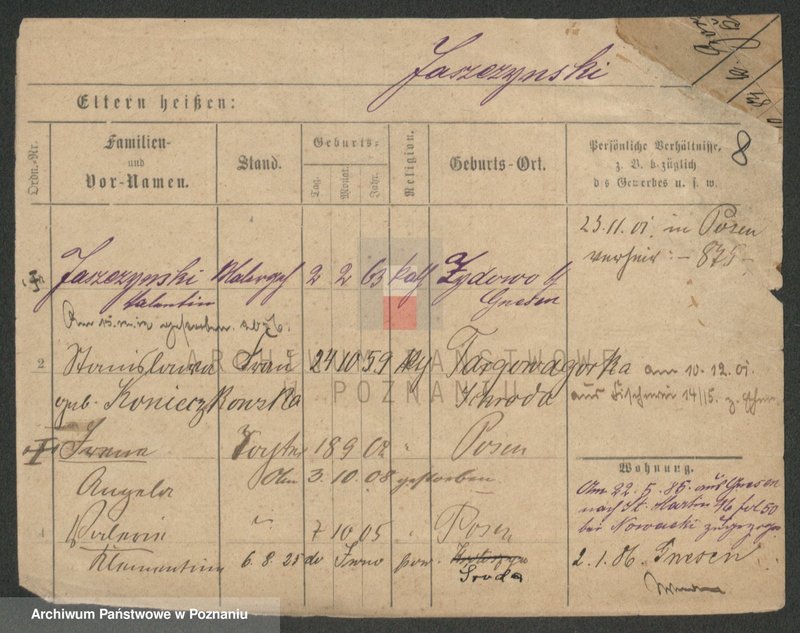 Jaszczynski
Eltern heißen:
8
Ordn.-Nr.
Familien- und Vor-Namen.
Stand.
Geburts-
Tag. Monat. Jahr.
Religion.
Geburts-Ort.
Persönliche Verhältnisse, z. B. bezüglich des Gewerbes u. s. w.
23.11.01. in Posen
verheir: – 875 –
Jaszczynski Malergeh 2 2 63 kath Żydowo G
Valentin Gnesen
gestorben.
2 Stanislawa Frau 24 10 59 Targowagorka am 10.12.01.
geb. Konieczkowska Schroda aus 14/15. z.
Irena Tochter 18 9 02 " Posen
Angela Am 3.10.08 gestorben.
Wohnung.
Am 22.5.85. aus Gnesen
nach St. Martin 46 fol 50
bei Nowacki zugezogen
4 Valerie " 7 10 05 " Posen
Klementine 6.8.25 do pow. Środa
2.1.86. Gnesen
ARCHIWUM PAŃSTWOWE
W POZNANIU
Archiwum Państwowe w Poznaniu